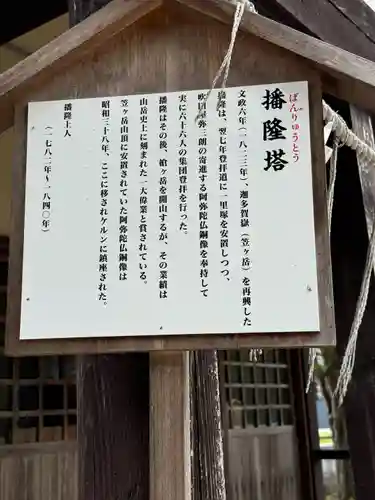 播隆塔
ばんりゅうとう
文政六年(一八二三年)、迦多賀嶽(笠ヶ岳)を再興した
播隆は、翌七年登拝道に一里塚を安置しつつ、
吹屋弥三朗の寄進する阿弥陀仏銅像を奉持して
実に六十六人の集団登拝を行った。
播隆はその後、槍ヶ岳を開山するが、その業績は
山岳史上に刻まれた一大偉業と賞されている。
笠ヶ岳山頂に安置されていた阿弥陀仏銅像は
昭和三十八年、ここに移されケルンに鎮座された。
播隆上人
(一七八二年〜一八四〇年)